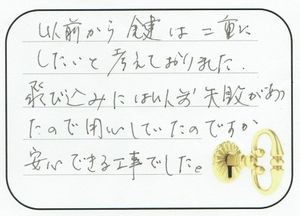 以前から鍵は二重に
したいと考えておりました.
飛び込みには以前失敗があっ
たので用心していたのですが
安心できる工事でした。